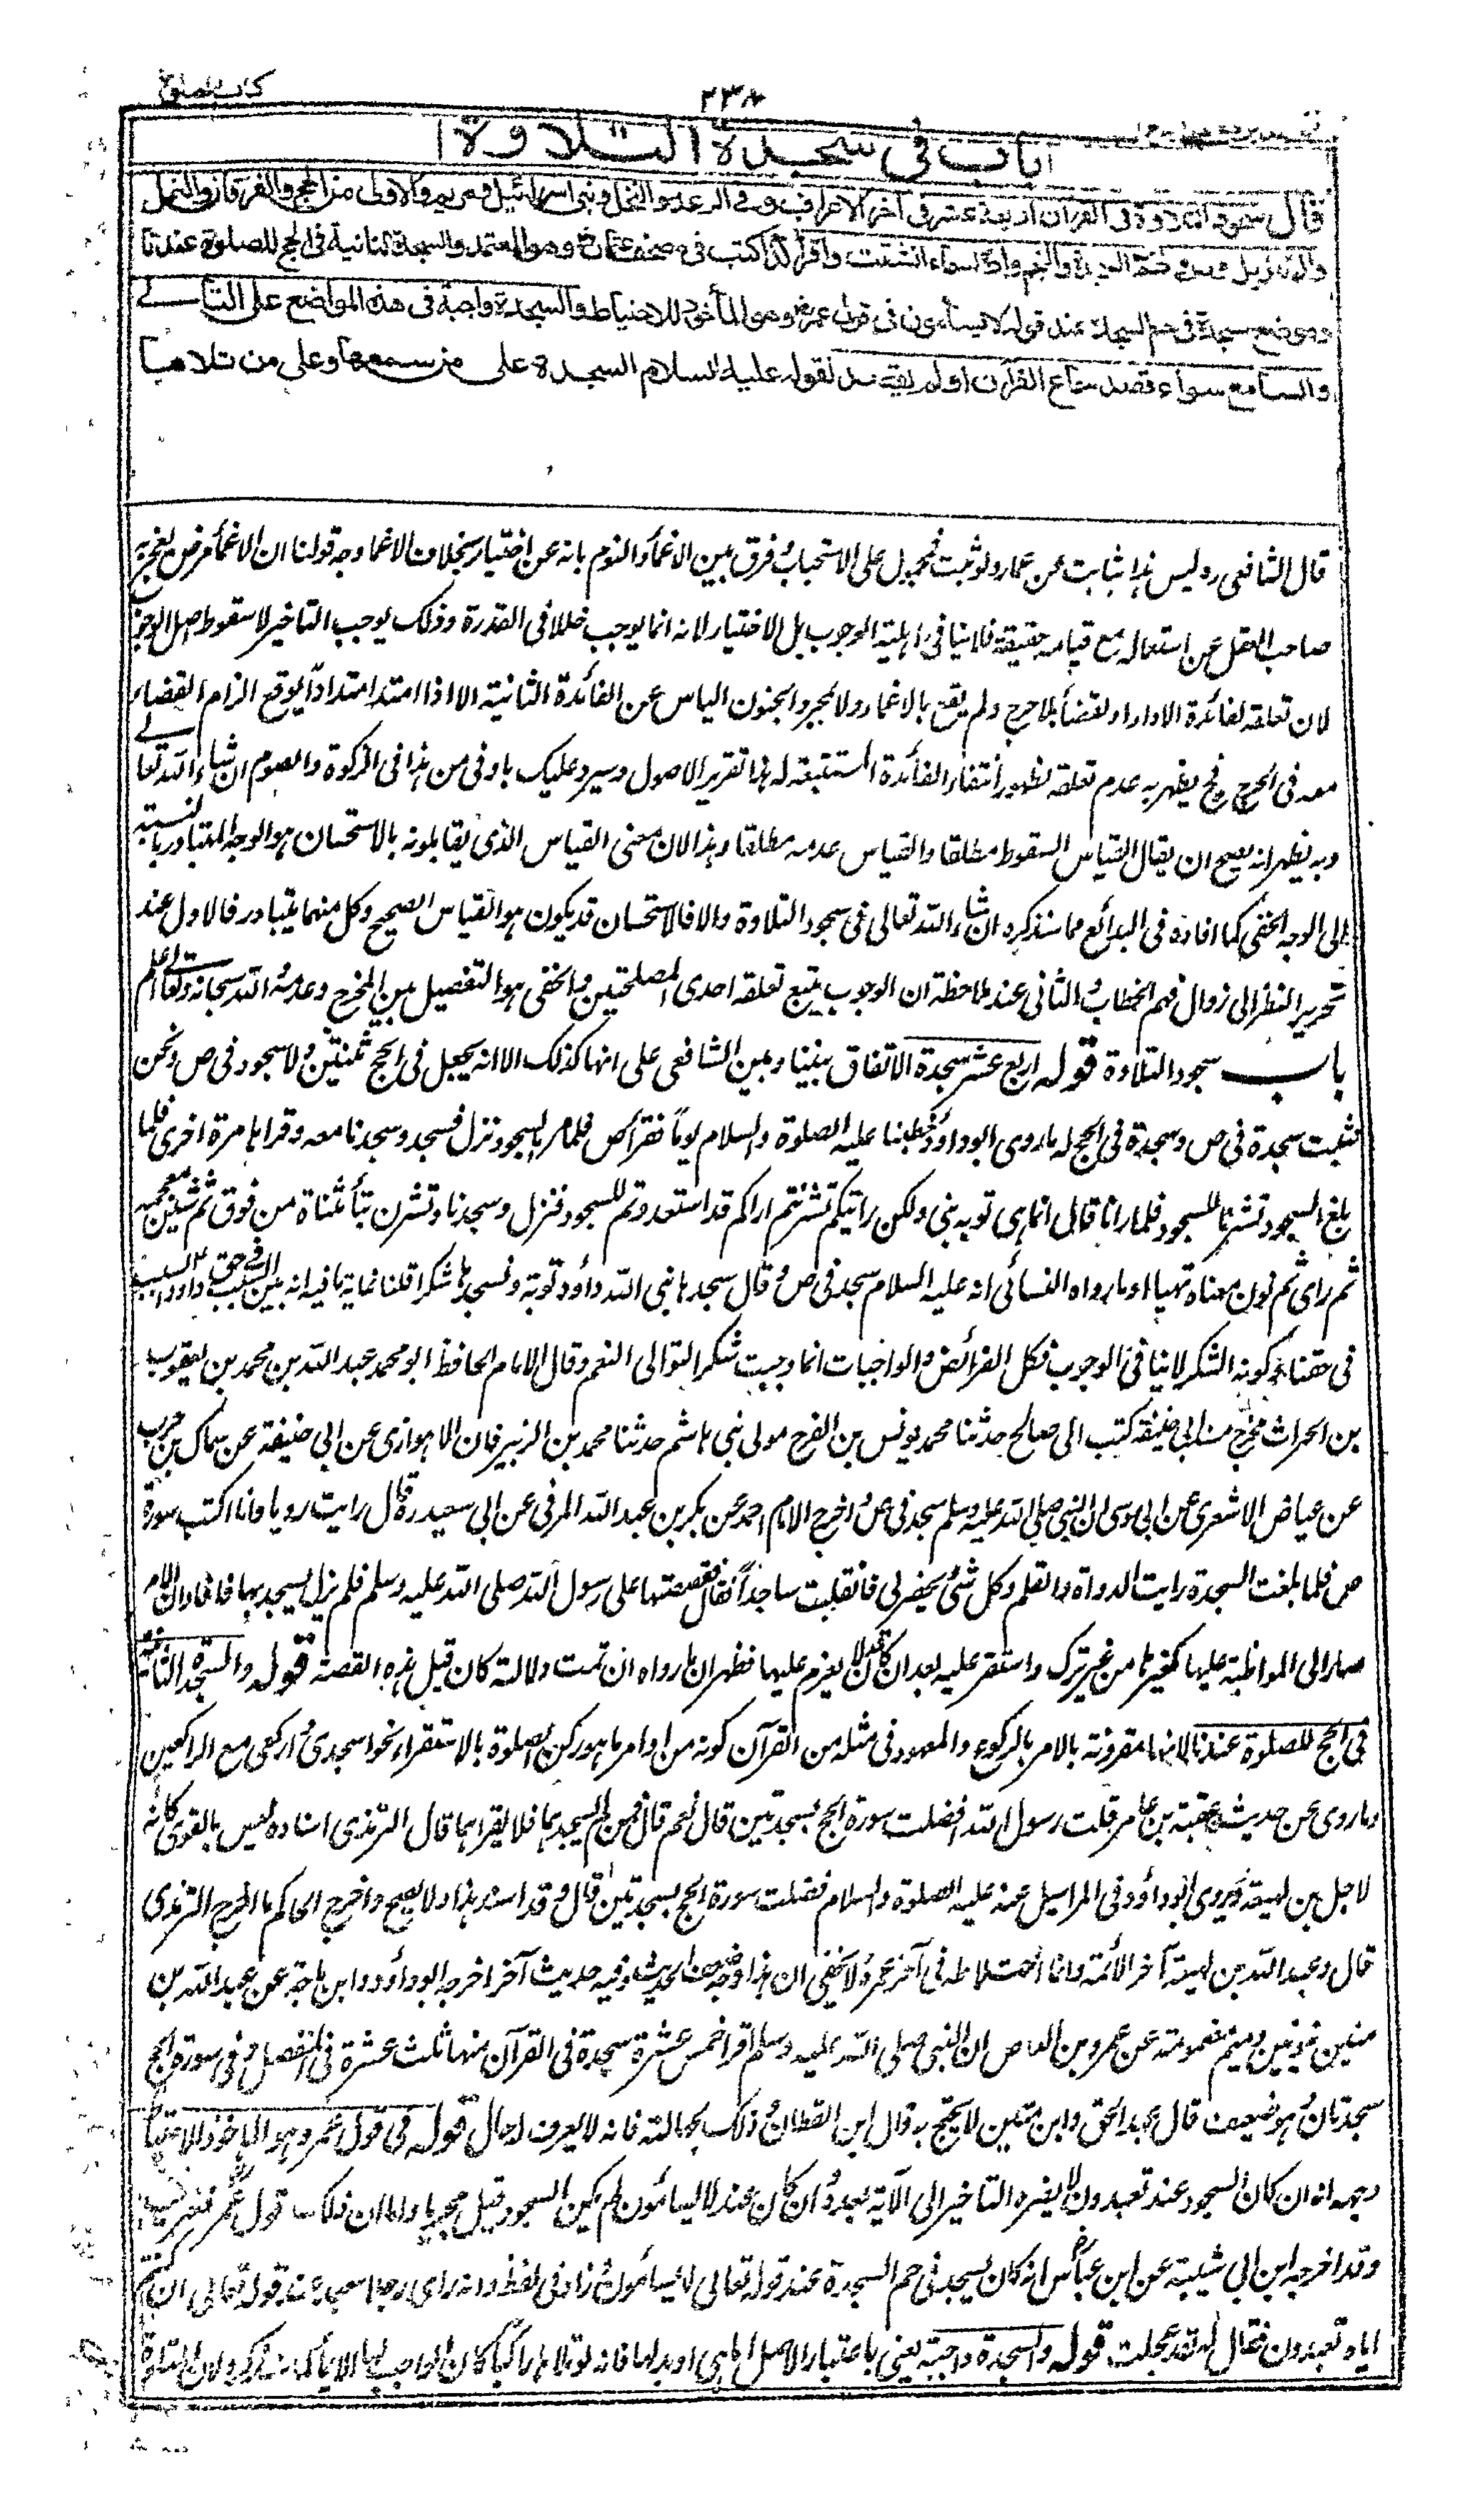 كتاب الصلوة
٢٣٨
باب فى سجدة التلاوة
قال سجود التلاوة فى القرآن اربعة عشر فى آخر الاعراف وفى الرعد والنحل وبنى اسرائيل ومريم والاولى من الحج والفرقان والنمل
والم تنزيل وص وحم السجدة والنجم واذا السماء انشقت واقرأ كذا كتب فى مصحف عثمان وهو المعتمد والسجدة الثانية فى الحج للصلوة عندنا
وموضع سجدة فى حم السجدة عند قوله لا يسأمون فى قول عمر وهو المأخوذ للاحتياط والسجدة واجبة فى هذه المواضع على التالى
والسامع سواء قصد سماع القرآن اولم يقصد لقوله عليه السلام السجدة على من سمعها وعلى من تلاها
قال الشافعى ره ليس هذا بثابت عن عمار ولو ثبت فمحمول على الاستحباب وفرق بين الاغماء والنوم بانه عن اختيار بخلاف الاغما وجه قولنا ان الاغماء مرض يعجز به
صاحب العقل عن استعماله مع قيامه حقيقة فلا ينافى اهلية الوجوب بل الاختيار لانه انما يوجب خللا فى القدرة وذلك يوجب التاخير لا سقوط اصل الوجوب
لان تعلقه لفائدة الاداء او القضاء بلا حرج ولم يقع بالاغماء ولا بمجرد الجنون الياس عن الفائدة الثانية الا اذا امتد امتدادا يوقع الزام القضاء
معه فى الحرج فح يظهر به عدم تعلقه لظهور انتفاء الفائدة المستتبعة له هذا تقرير الاصول وسيرد عليك باوفى من هذا فى الزكوة والصوم ان شاء الله تعالى
وبه يظهر انه يصح ان يقال القياس السقوط مطلقا والقياس عدمه مطلقا وهذا لان معنى القياس الذى يقابلونه بالاستحسان هو الوجه المتبادر بالنسبة
الى الوجه الخفى كما افاده فى البدائع مما سنذكره ان شاء الله تعالى فى سجود التلاوة والا فالاستحسان قد يكون هو القياس الصحيح وكل منهما يتبادر فالاول عند
تحرير النظر الى زوال فهم الخطاب والثانى عند ملاحظة ان الوجوب يتبع تعلقه احدى المصلحتين والخفى هو التفصيل بين المخرج وعدمه والله سبحانه وتعالى اعلم
باب سجود التلاوة قوله اربع عشر سجدة الاتفاق بيننا وبين الشافعى على انها كذلك الا انه يجعل فى الحج ثنتين ولا سجود فى ص ونحن
نثبت سجدة فى ص وسجدة فى الحج له ما روى ابو داود خطبنا عليه الصلوة والسلام يوما فقرأ ص فلما مر بالسجود نزل فسجد وسجدنا معه وقراها مرة اخرى فلما
بلغ السجود تشزنا للسجود فلما رانا قال انما هى توبة نبى ولكن رايتكم تشزنتم اراكم قد استعدوتم للسجود فنزل وسجدنا وتشزن بتاء مثناة من فوق ثم شين معجمة
ثم زاى ثم نون معناه تهيأ او ما رواه النسائى انه عليه السلام سجد فى ص وقال سجدها نبى الله داود توبة ونسجدها شكرا قلنا غاية ما فيه انه بين السبب فى حق داود والسبب
فى حقنا وكونه الشكر لا ينافى الوجوب فكل الفرائض والواجبات انما وجبت شكرا لتوالى النعم وقال الامام الحافظ ابو محمد عبد الله بن محمد بن يعقوب
بن الحراث مخرج مسند ابى حنيفة كتب الى صالح حدثنا محمد يونس بن الفرج مولى بنى هاشم حدثنا محمد بن الزبير قان الاهوازى عن ابى حنيفة عن سماك بن حرب
عن عياض الاشعرى عن ابى موسى ان النبى صلى الله عليه وسلم سجد فى ص واخرج الامام احمد عن بكر بن عبد الله المزنى عن ابى سعيد ره قال رايت رويا وانا اكتب سورة
ص فلما بلغت السجدة رايت الدواة والقلم وكل شئ يحضر لى فانقلبت ساجدا فقال فقصصتها على رسول الله صلى الله عليه وسلم فلم يزل يسجد بها فافاد ان الامر
صار الى المواظبة عليها كغيرها من غير ترك واستقر عليه بعد ان كان قبل لا يعزم عليها فظهر ان ما رواه ان تمت دلالته كان قبل هذه القصة قوله والسجدة الثانية
فى الحج للصلوة عندنا لانها مقرونة بالامر بالركوع والمعهود فى مثله من القرآن كونه من اوامر ما هو ركن الصلوة بالاستقراء نحو اسجدى واركعى مع الراكعين
وما روى عن حديث عقبة بن عامر قلت رسول الله افضلت سورة الحج بسجدتين قال نعم قال فمن لم يسجدهما فلا يقراهما قال الترمذى اسناده ليس بالقوى كانه
لاجل بن لهيعة وروى ابو داود فى المراسيل عنه عليه الصلوة والسلام فضلت سورة الحج بسجدتين قال وقد اسند هذا ولا يصح واخرج الحاكم ما اخرج الترمذى
قال وعبد الله بن لهيعة آخر الائمة وانما نقمت اختلاطه فى آخر عمره ولا يخفى ان هذا وجه ضعف الحديث وفيه حديث آخر اخرجه ابو داود وابن ماجة عن عبد الله بن
منين بنونين وميم مضمومة عن عمرو بن العاص ان النبى صلى الله عليه وسلم اقرأ خمس عشرة سجدة فى القرآن منها ثلث عشرة فى المفصل وفى سورة الحج
سجدتان وهو ضعيف قال عبد الحق وابن منين لا يحتج به وقال ابن القطان وذلك بجهالته فانه لا يعرف له حال قوله فى قول عمر وهو الماخوذ للاحتياط
وجهه انه ان كان السجود عند تعبدون لا يضره التاخير الى الآية بعده وان كان عند لا يسأمون لم يكن السجود قبل مجزيا واما ان ذلك قول عمر فغريب
وقد اخرجه ابن ابى شيبة عن ابن عباس انه كان يسجد فى حم السجدة عند قوله تعالى لا يسأمون زاد فى لفظ وانه راى رجلا سجد عند قوله تعالى ان كنتم
اياه تعبدون فقال له لقد عجلت قوله والسجدة واجبة يعنى باعتبار الاصل اما هى او بدلها فانه لو تلاها راكبا كان الواجب لها الايماء